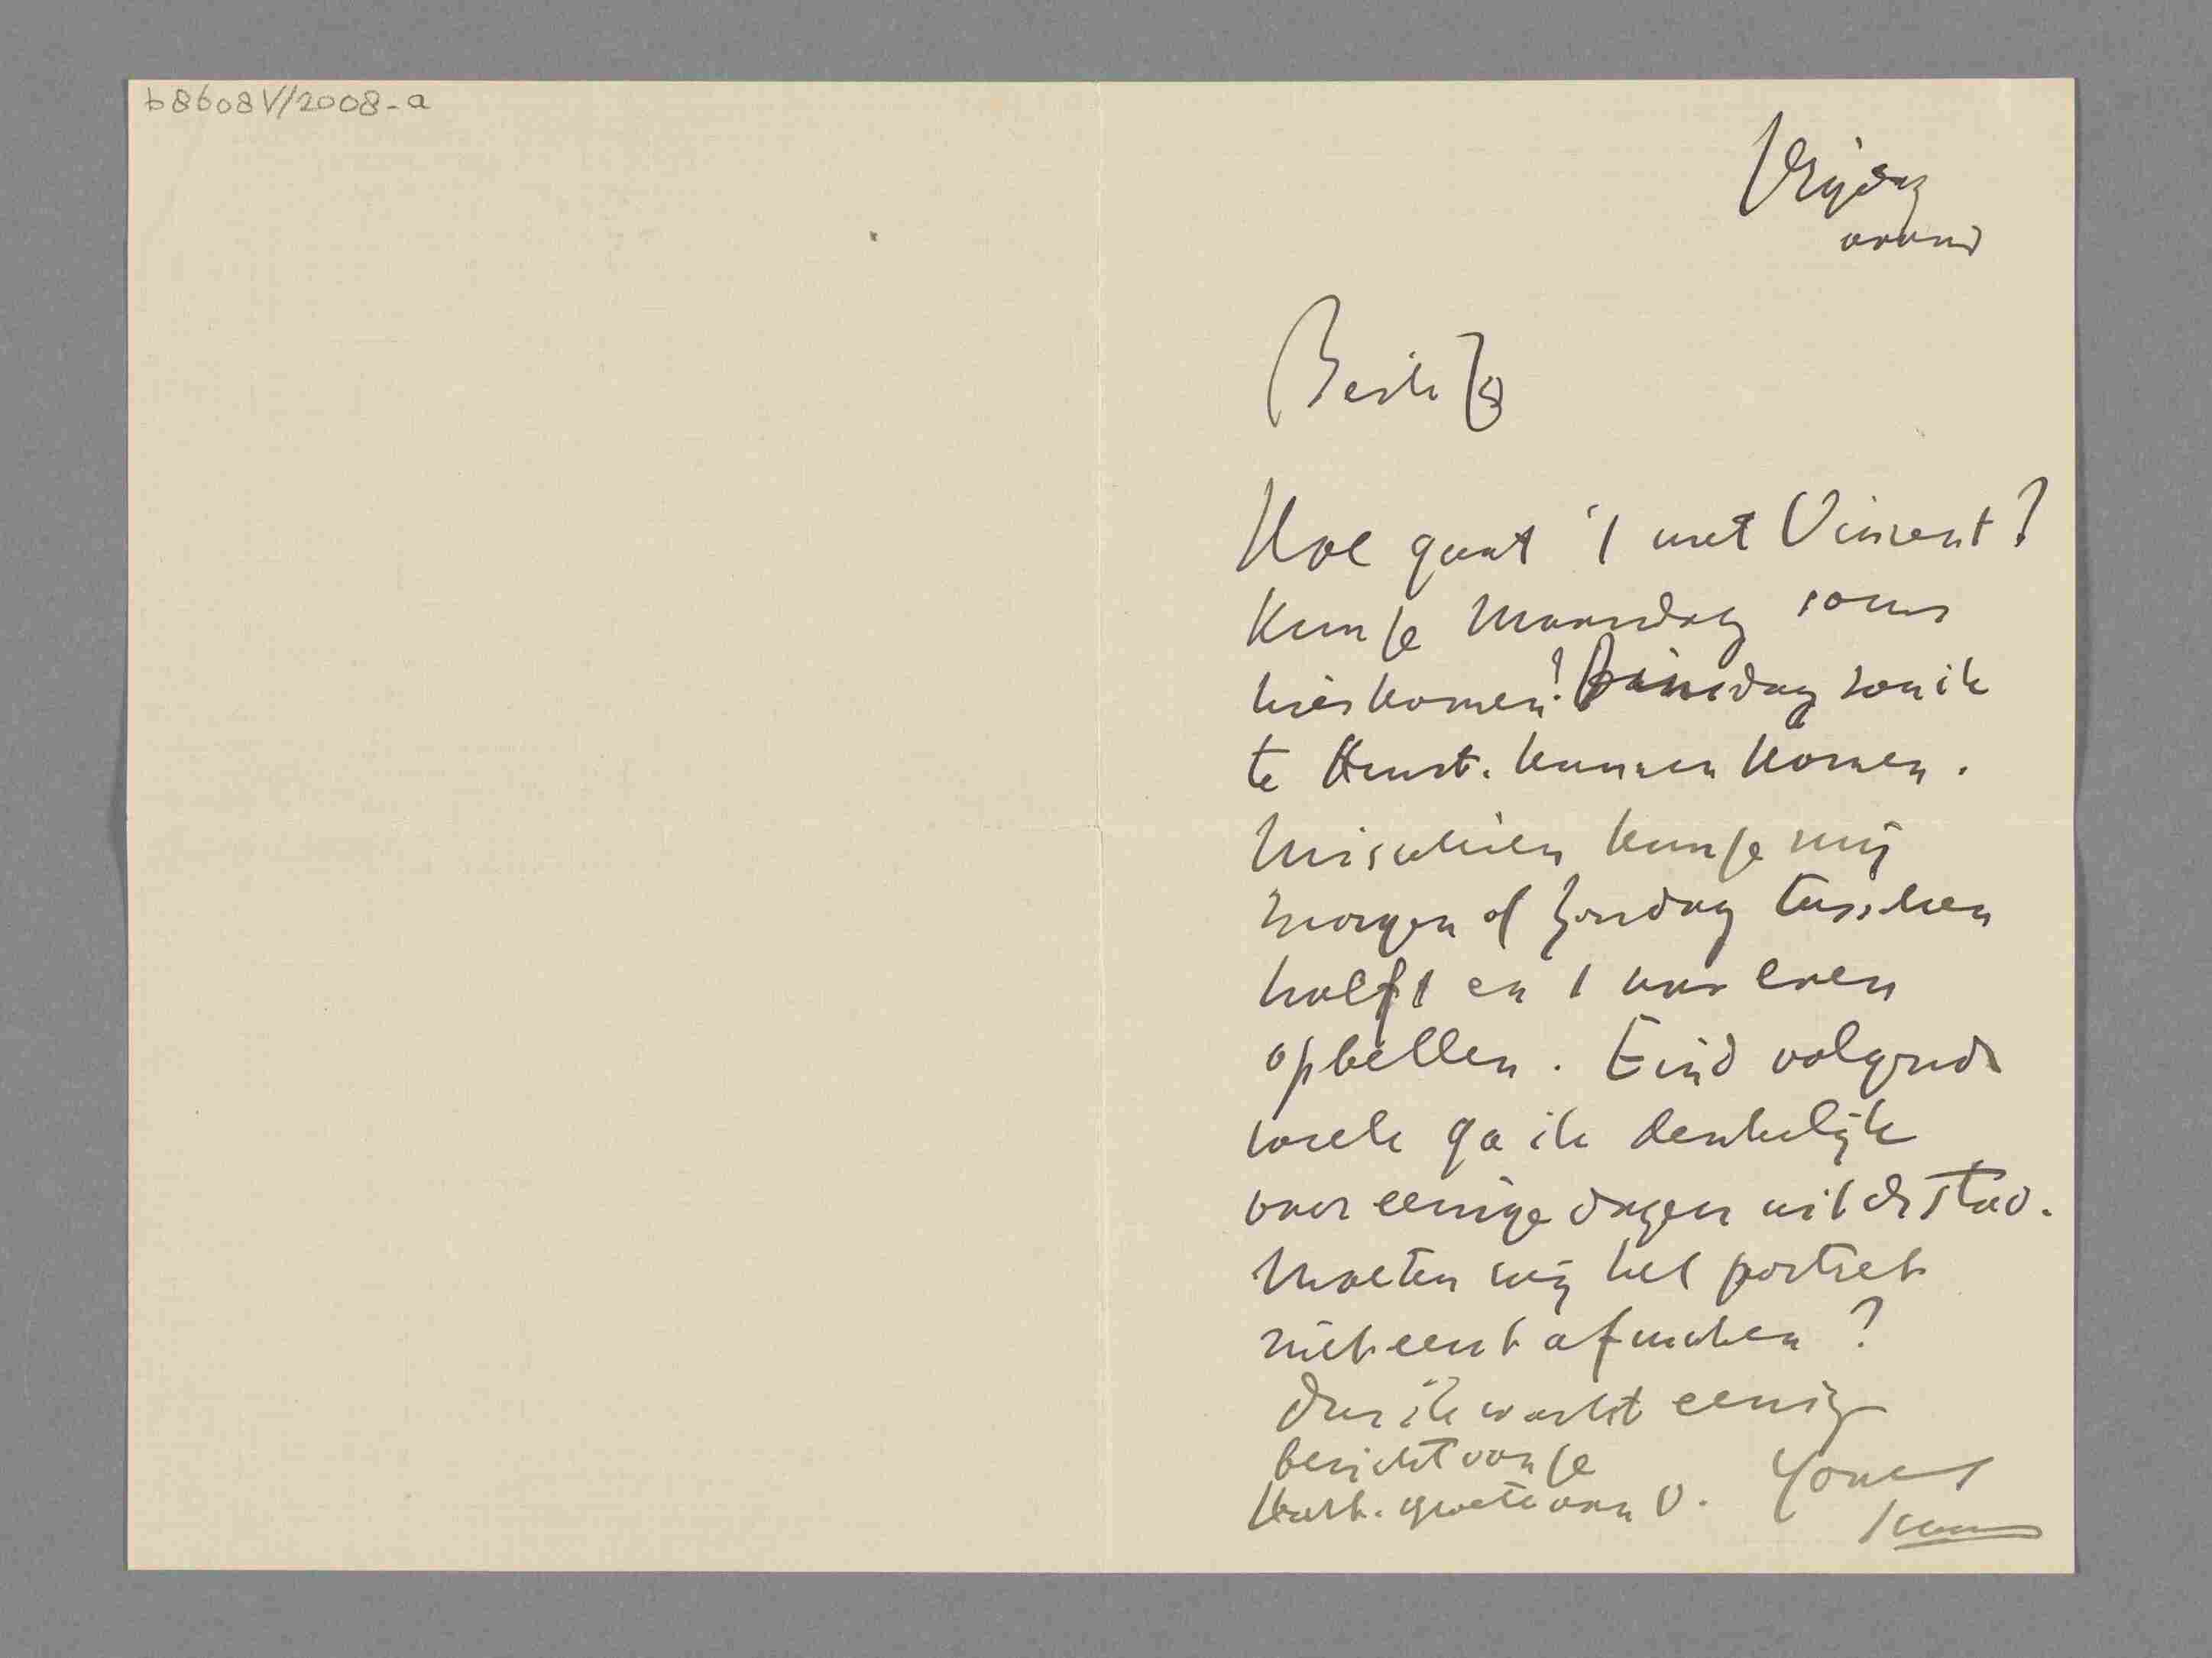 b8608 V/2008-a
Vrijdag
avond
Beste Jo
Hoe gaat 't met Vincent?
Kun je Maandag soms
hier komen? Dinsdag zou ik
te Amst. kunnen komen.
Misschien kun je mij
morgen of Zondag tusschen
half 1 en 1 uur even
opbellen. Eind volgende
week ga ik denkelijk
voor eenige dagen uit de stad.
Moeten wij het portret
niet eerst afmaken?
Dus ik wacht eenig
bericht van je
Hart. groete van O. Your
Isaac